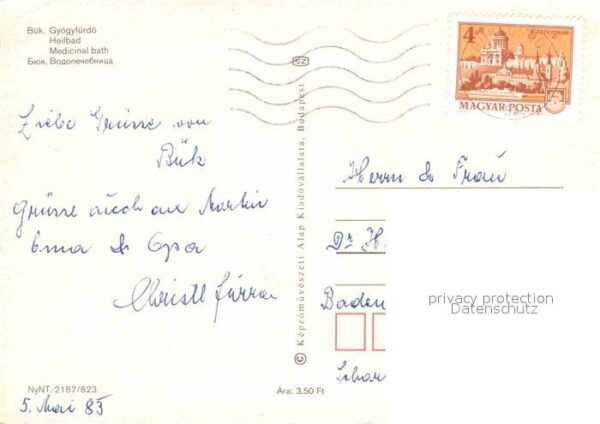 Bük. Gyógyfürdő
Heilbad
Medicinal bath
Бюк. Водолечебница
Liebe Grüsse von
Bük
Grüsse auch an Martin
Oma & Opa
Christl
NyNT.-2187/823.
5. Mai 85
Ára: 3,50 Ft
© Képzőművészeti Alap Kiadóvállalata, Budapest
SZ
4 Ft
Esztergom
MAGYAR POSTA
Herrn & Frau
Dr H
Baden
privacy protection
Datenschutz